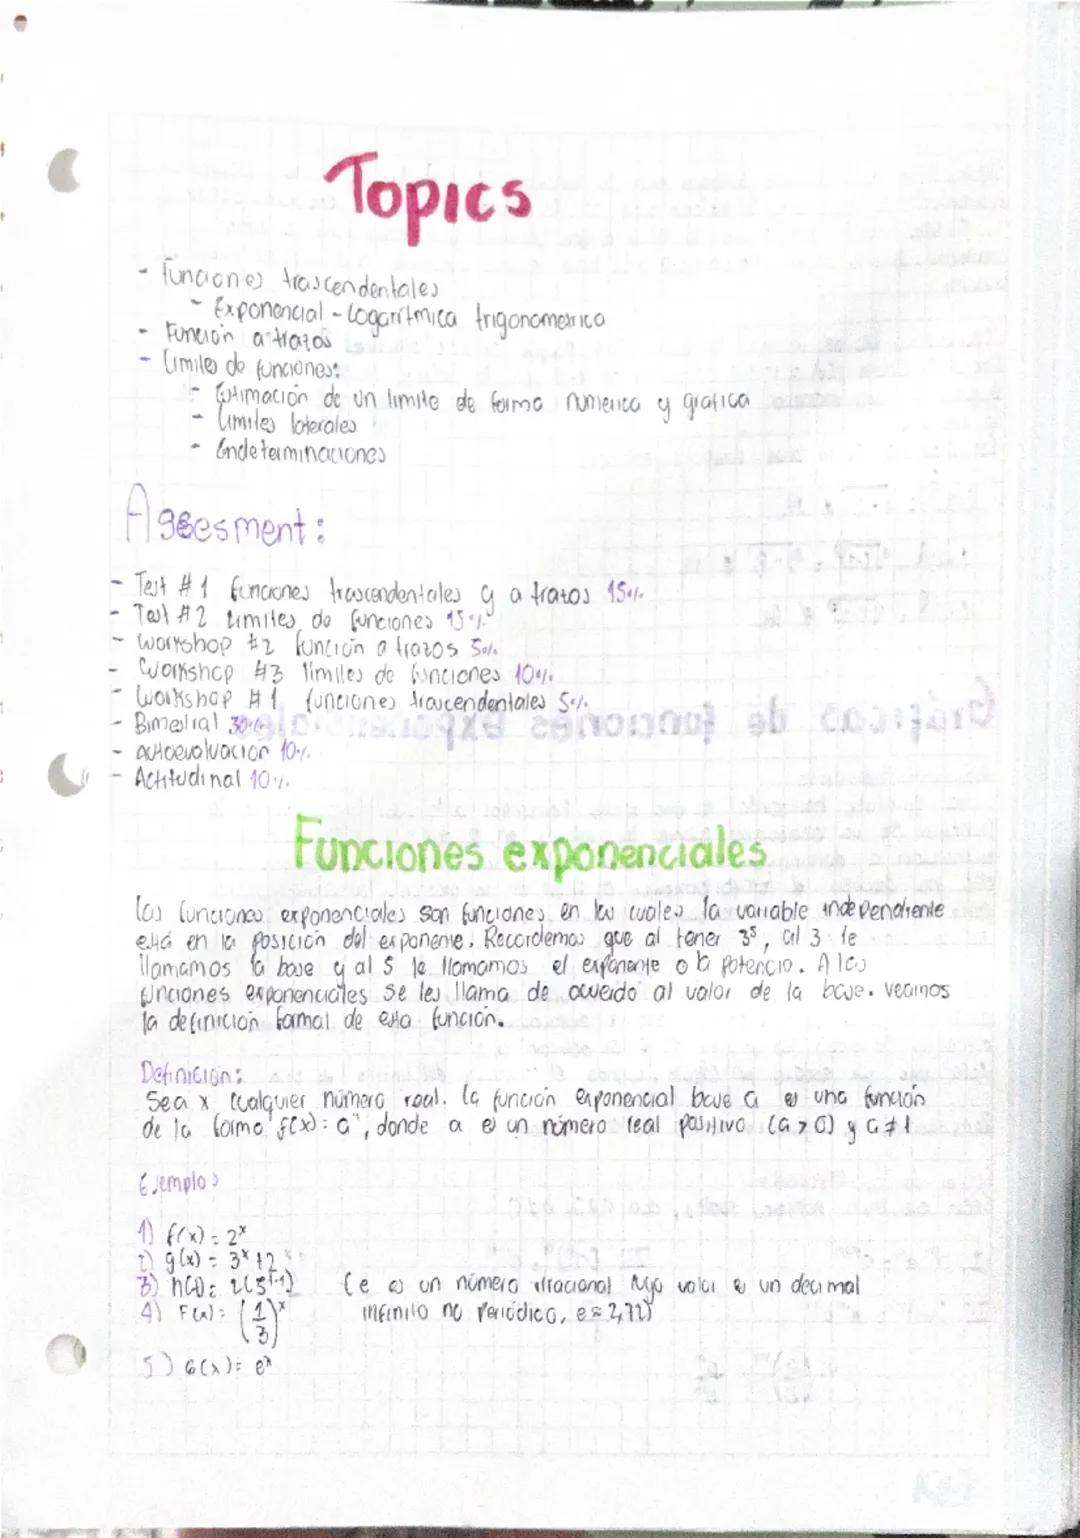 Topics
- Funciones trascendentales
- Exponencial - Logarítmica trigonometrica
- Función a trazos
- Limites de funciones:
- Estimación de un limite de forma numerica y grafica
- Limites laterales
- Indeterminaciones
Assesment:
- Test #1 funciones trascendentales y a trazos 15%
- Test #2 Limites de funciones 15%
- Workshop #2 función a trazos 5%
- Workshop #3 limites de funciones 10%
- Workshop #1 funciones trascendentales 5%
- Bimestral 30%
- Autoevaluación 10%
- Actitudinal 10%
Funciones exponenciales
Las funciones exponenciales son funciones en las cuales la variable independiente
está en la posición del exponente. Recordemos que al tener 3⁵, al 3 le
llamamos la base y al 5 le llamamos el exponente o la potencia. A las
funciones exponenciales se les llama de acuerdo al valor de la base. veamos
la definición formal de esta función.
Definición:
Sea x cualquier número real. la función exponencial base a es una función
de la forma f(x) = aˣ, donde a es un número real positivo (a > 0) y a ≠ 1
Ejemplos
1) f(x) = 2ˣ
2) g(x) = 3ˣ + 2
3) h(t) = 2(5ᵗ⁻¹) (e es un número irracional cuyo valor es un decimal
4) F(x) = (1/3)ˣ infinito no periódico, e ≈ 2,72)
5) G(x) = eˣ